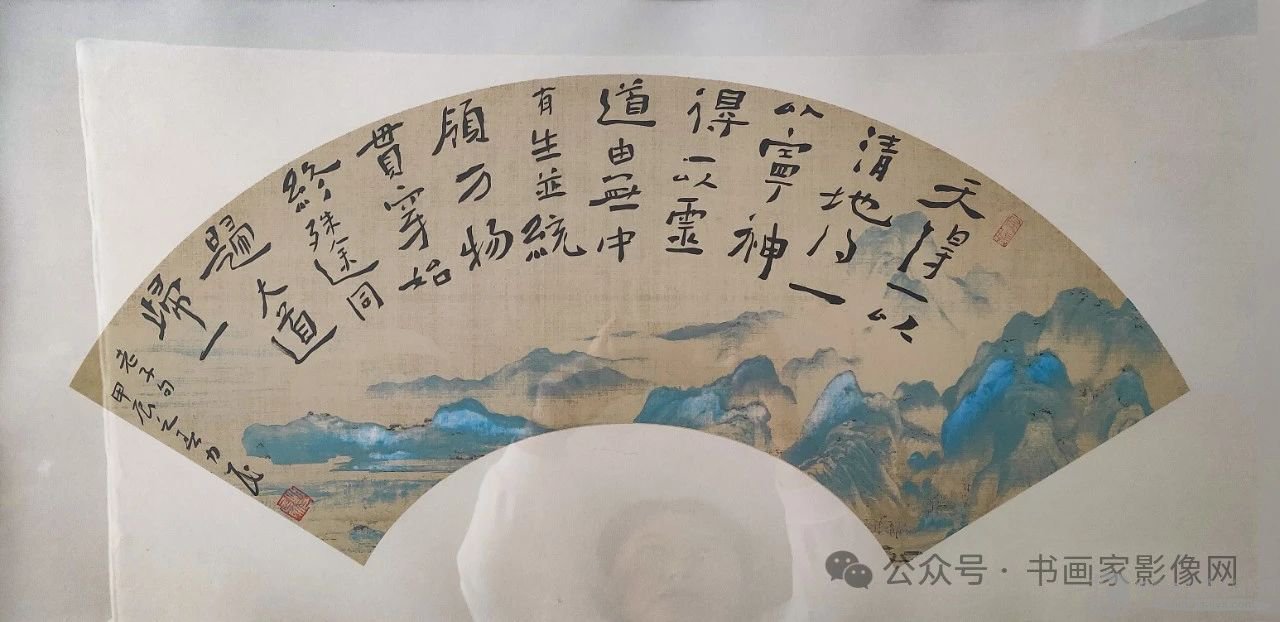 天得一以
清地得一
以寧神
得一以靈
道由無中
有生並統
領万物
貫穿始
終殊途同
歸大道
歸一
老子句
甲辰之春力
公众号 · 书画家影像网